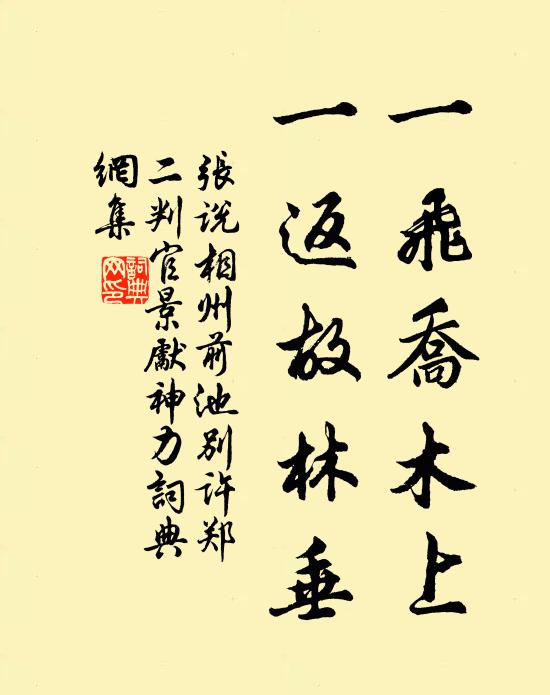 一飛喬木上
一返故林垂
張説相州前池别許郑
二判官景獻神力詞典
網集
詞典網印